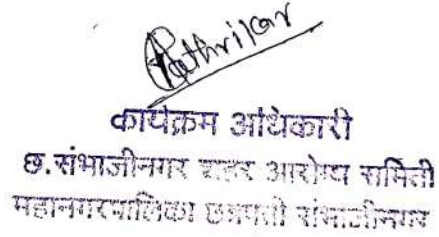 Pathrikar
कार्यक्रम अधिकारी
छ.संभाजीनगर शहर आरोग्य समिती
महानगरपालिका छत्रपती संभाजीनगर